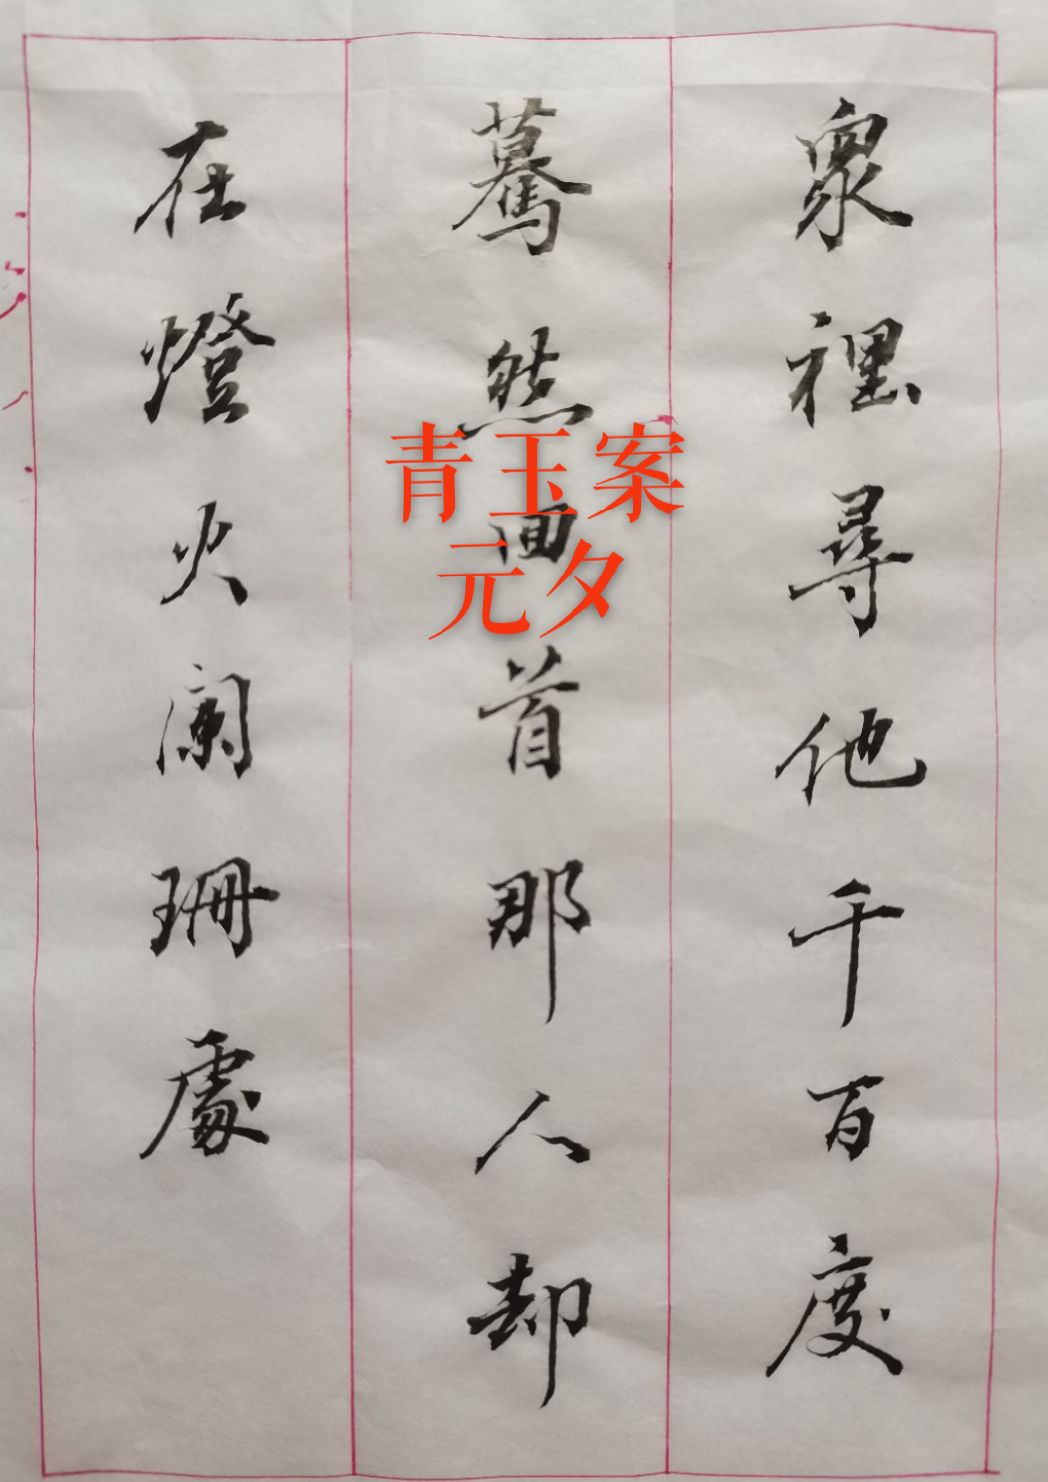 眾裡尋他千百度
驀然回首那人却
在燈火闌珊處
青玉案
元夕